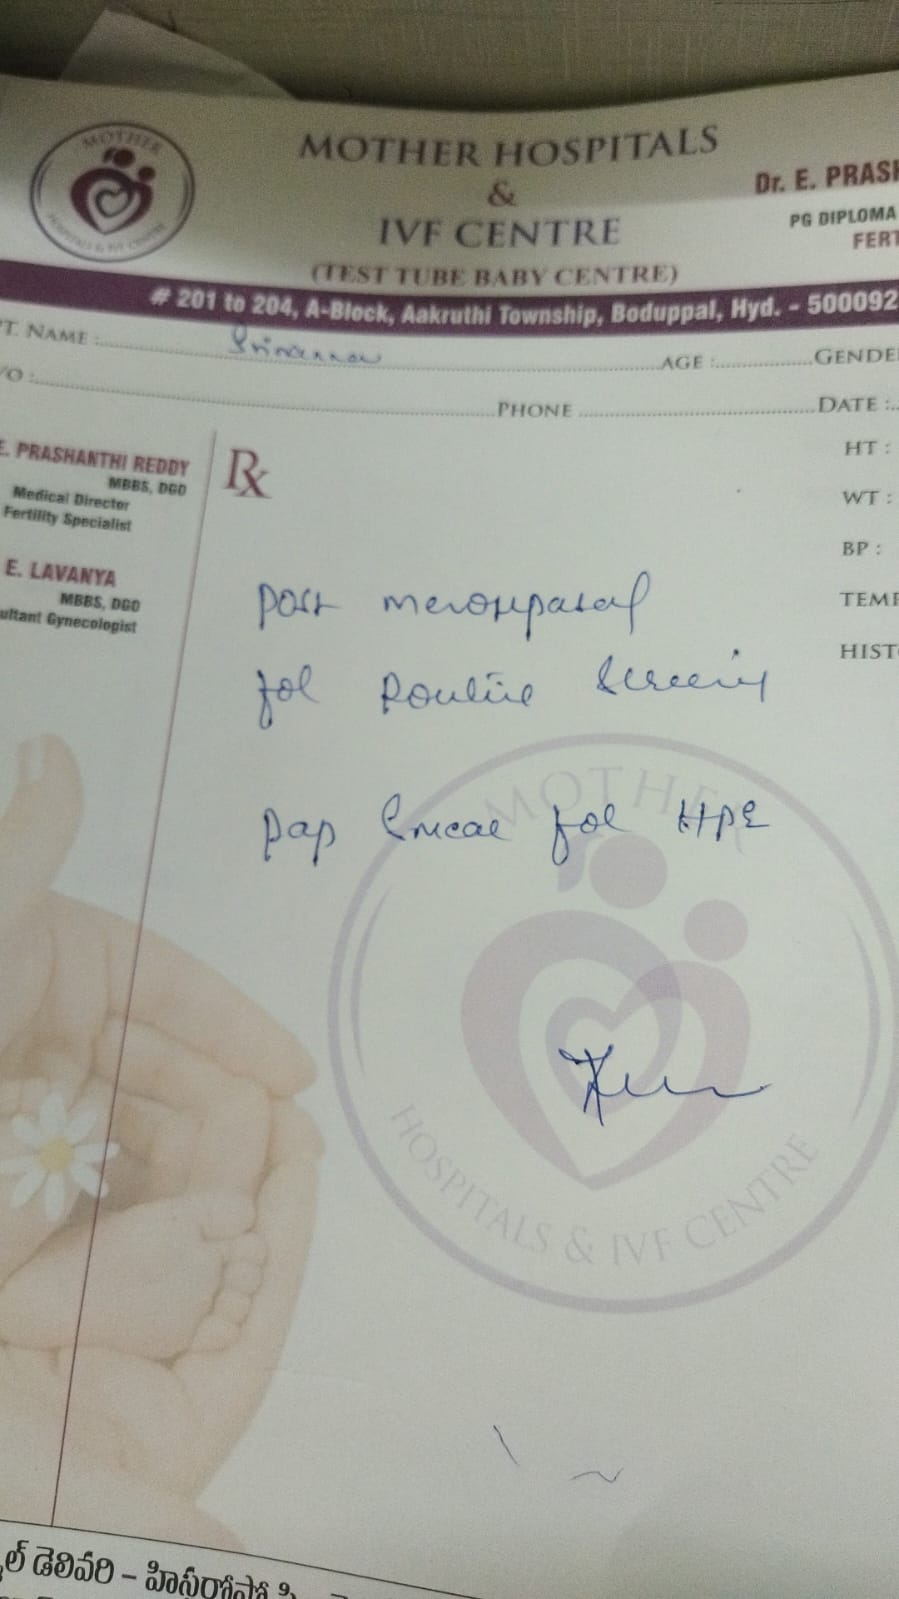 MOTHER
HOSPITALS & IVF CENTRE
MOTHER HOSPITALS
&
IVF CENTRE
(TEST TUBE BABY CENTRE)
Dr. E. PRASH
PG DIPLOMA
FERT
# 201 to 204, A-Block, Aakruthi Township, Boduppal, Hyd. - 500092
PT. NAME :
AGE : GENDE
/O : PHONE DATE :
E. PRASHANTHI REDDY
MBBS, DGO
Medical Director
Fertility Specialist
E. LAVANYA
MBBS, DGO
ultant Gynecologist
Rx
HT :
WT :
BP :
TEMP
HIST
Post menopausal
for Routine Screening
pap smear for HPE
MOTHER
HOSPITALS & IVF CENTRE
ల్ డెలివరి – హిస్టరోస్కోపి